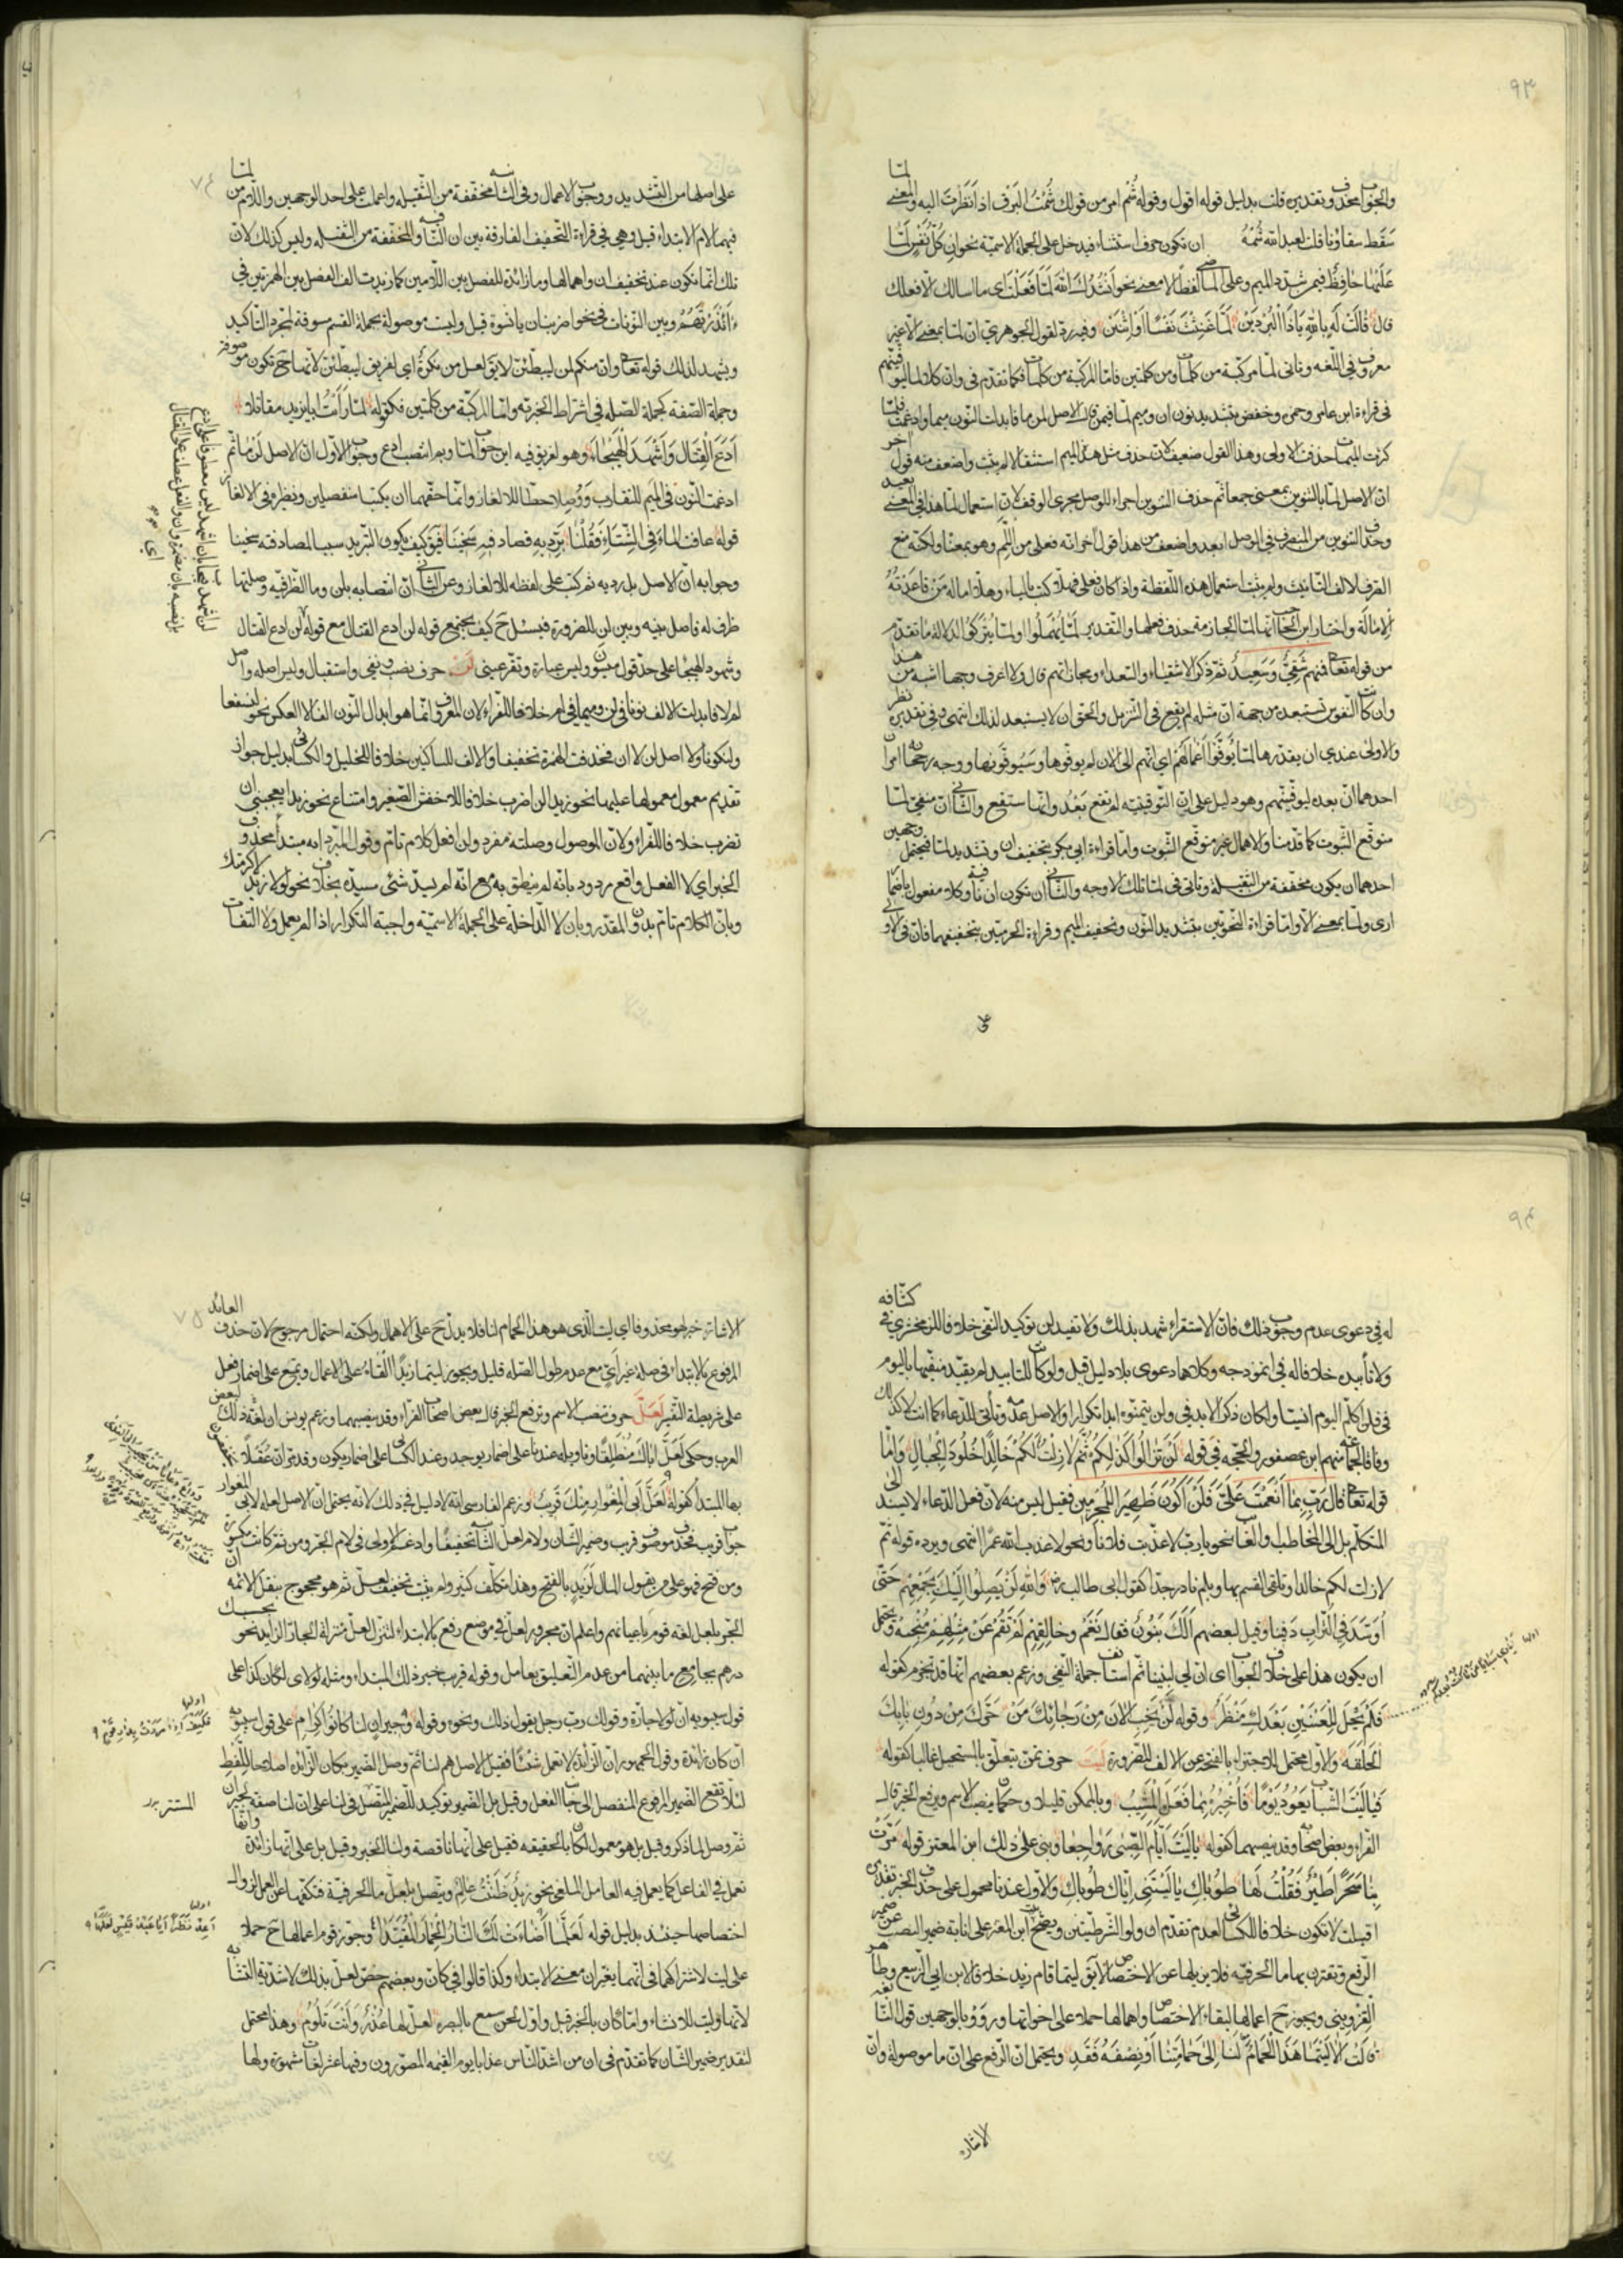 ٩٣
والجواب محذوف وتقديره قلت بدليل قوله اقول وقوله شم امر من قولك شمت البرق اذا نظرت اليه والمعنى لما
سقط سقاؤنا قلت لعبد الله شمه ان تكون حرف استثناء فيدخل على الجملة الاسمية نحو ان كل نفس لما
عليها حافظ فيمن شدد الميم وعلى الماضي لفظا لا معنى نحو انشدك الله لما فعلت اى ما اسالك الا فعلك
قال قالت له بالله ياذا البردين لما غنثت نفسا او اثنين وفيه رد لقول الجوهرى ان لما بمعنى الا غير
معروف فى اللغه وتاتى لما مركبة من كلمات ومن كلمتين فاما المركبة من كلمات فكما تقدم فى وان كلا لما ليوفينهم
فى قراءة ابن عامر وحمزه وحفص بتشديد نون ان وميم لما فيمن قال الاصل لمن ما فابدلت النون ميما وادغمت فلما
كثرت الميمات حذفت الاولى وهذا القول ضعيف لان حذف مثل هذا الميم استثقالا لم يثبت واضعف منه قول اخر
ان الاصل لما بالتنوين بمعنى جمعا ثم حذف التنوين اجراء للوصل مجرى الوقف لان استعمال لما هذا فى المعنى بعيد
وحذف التنوين من المنصرف فى الوصل ابعد واضعف من هذا قول اخر انه فعلى من اللم وهو بمعناه ولكنه منع
الصرف لالف التانيث ولم يثبت استعمال هذه اللفظة واذا كان فعلى فهلا كتب بالياء وهلا اماله من قاعدته
الامالة واختار ابن الحاجب انها لما الجازمة حذف فعلها والتقدير لما يهملوا او لما يتركوا لدلالة ما تقدم
من قوله تعالى فمنهم شقى وسعيد ثم ذكر الاشقياء والسعداء ومجازاتهم قال ولا اعرف وجها اشبه من هذا
وان كانت النفوس تستبعده من جهة ان مثله لم يقع فى التنزيل والحق ان لا يستبعد لذلك انتهى وفى تقديره نظر
والاولى عندى ان يقدر لما يوفوا اعمالهم اى انهم الى الان لم يوفوها وسيوفونها ووجه رجحانه امران
احدهما ان بعده ليوفينهم وهو دليل على ان التوفيه لم تقع بعد وانها ستقع والثانى ان منفى لما
متوقع الثبوت كما قدمنا والاهمال غير متوقع الثبوت واما قراءة ابى بكر بتخفيف ان وتشديد لما فيحتمل وجهين
احدهما ان يكون مخففة من الثقيلة وتاتى فى لما تلك الاوجه والثانى ان تكون ان نافية وكلا مفعول باضمار
ارى ولما بمعنى الا واما قراءة النحويين بتشديد النون وتخفيف الميم وقراءة الحرميين بتخفيفهما فان فى الاولى
على
٧٤
على اصلها من التشديد ووجوب الاعمال وفى الثانيه مخففة من الثقيله واعملت على احد الوجهين واللام من لما
فيهما لام الابتداء قيل وهى فى قراءة التخفيف الفارقة بين ان النافيه والمخففة من الثقيله وليس كذلك لان
تلك انما تكون عند تخفيف ان واهمالها وما زائدة للفصل بين اللامين كما زيدت الف الفصل بين الهمزتين فى
ءانذرتهم وبين النونات فى نحو اضربنان يا نسوة قيل وليست موصولة بجملة القسم مسوقة لمجرد التاكيد
ويشهد لذلك قوله تعالى وان منكم لمن ليبطئن لا يق لعل من نكرة اى لفريق ليبطئن لانها ح تكون موصوفه
وجملة الصفه كجملة الصله فى اشتراط الخبرية واما المركبة من كلمتين فكقوله لما رايت ابا يزيد مقاتلا
ادع القتال واشهد الهيجاء وهو لغز يق فيه اين جواب لما وبم انتصب ادع وجواب الاول ان الاصل لن ما ثم
ادغمت النون فى الميم للتقارب ووصلا خطا للالغاز وانما حقهما ان يكتبا منفصلين ونظيره فى الالغاز
قوله عافت الماء فى الشتاء فقلنا برديه تصادفيه سخينا فيق كيف يكون التبريد سببا لمصادفته سخينا
وجوابه ان الاصل بل رديه ثم كتب على لفظه للالغاز وعن الثانى ان انتصابه بلن وما الظرفية وصلتها
ظرف له فاصل بينه وبين لن للضرورة فيسئل ح كيف يجتمع قوله لن ادع القتال مع قوله لن ادع القتال
وشهود الهيجا على حد قول ميسون ولبس عباءة وتقر عينى لن حرف نصب ونفى واستقبال وليس اصله واصل
لم لا فابدلت الالف نونا فى لن وميما فى لم خلافا للفراء لان المعروف انما هو ابدال النون الفا لا العكس نحو لنسفعا
وليكونا ولا اصل لن لا ان فحذفت الهمزة تخفيفا والالف للساكنين خلافا للخليل والكسائى بدليل جواز
تقديم معمول معمولها عليها نحو زيدا لن اضرب خلافا للاخفش الصغير وامتناع نحو زيدا يعجبنى ان
تضرب خلافا للفراء ولان الموصول وصلته مفرد ولن افعل كلام تام وقول المبرد انه مبتدأ محذوف
الخبر اى لا الفعل واقع مردود بانه لم ينطق به مع انه لم يسد شئ مسده بخلاف نحو لولا زيد لاكرمتك
وبان الكلام تام بدون المقدر وبان لا الداخلة على الجملة الاسمية واجبة التكرار اذا لم يعمل ولا التفات
٩٤
له فى دعوى عدم وجوب ذلك فان الاستقراء شهد بذلك ولا تفيد لن توكيد النفى خلافا للزمخشرى فى كشافه
ولا تأبيده خلافا له فى انموذجه وكلاهما دعوى بلا دليل قيل ولو كانت للتابيد لم يقيد منفيها باليوم
فى فلن اكلم اليوم انسيا ولكان ذكر الابد فى ولن يتمنوه ابدا تكرارا والاصل عدمه وتأتى للدعاء كما اتت لا كذلك
وفاقا لجماعة منهم ابن عصفور والحجه فى قوله لن تزالوا كذلكم ثم لا زلت لكم خالدا خلود الجبال واما
قوله تعالى قال رب بما انعمت على فلن اكون ظهيرا للمجرمين فقيل ليس منه لان فعل الدعاء لا يسند الى
المتكلم بل الى المخاطب والغائب نحو يا رب لا عذبت فلانا ونحو لا عذب الله عمرا انتهى ويرده قوله ثم
لا زلت لكم خالدا وتلقى القسم بها وبلم نادر جدا كقول ابى طالب رض والله لن يصلوا اليك بجمعهم حتى
اوسد فى التراب دفينا وقيل لبعضهم الك بنون فقال نعم وخالقهم لم تقم عن مثلهم منجبة ويحتمل
ان يكون هذا على خلاف الجواب اى ان لى لبنينا ثم استانف جملة النفى وزعم بعضهم انها قد تجزم كقوله
فلم يحل للعينين بعدك منظر وقوله لن يخب الان من رجائك من حرك من دون بابك
الحلقه والاول محتمل للاجتزاء بالفتحة عن الالف للضرورة ليت حرف تمن يتعلق بالمستحيل غالبا كقوله
فياليت الشباب يعود يوما فاخبره بما فعل المشيب وبالممكن قليلا وحكمه ان ينصب الاسم ويرفع الخبر قال
الفراء وبعض اصحابه وقد ينصبهما كقوله ياليت ايام الصبى رواجعا وبنى على ذلك ابن المعتز قوله مرت
بنا سحرا طير فقلت لها طوباك ياليتنى اياك طوباك والاول عندنا محمول على حذف الخبر تقديره
اقبلت لا تكون خلافا للكسائى لعدم تقدم ان ولو الشرطيتين ويصح بيت ابن المعتز على انابة ضمير النصب عن ضمير
الرفع وتقترن بها ما الحرفيه فلا يزيلها عن الاختصاص لا يق ليتما قام زيد خلافا لابن ابى الربيع وطاهر
القزوينى ويجوز ح اعمالها لبقاء الاختصاص واهمالها حملا على اخواتها ورووا بالوجهين قول النابغة
قالت الا ليتما هذا الحمام لنا الى حمامتنا او نصفه فقد ويحتمل ان الرفع على ان ما موصولة وان
الاشارة
٧٥
الاشارة خبر لهو محذوفا اى ليت الذى هو هذا الحمام لنا فلا يدل ح على الاهمال ولكنه احتمال مرجوح لان حذف العائد
المرفوع بالابتداء فى صلة غير اى مع عدم طول الصله قليل ويجوز ليتما زيدا القاه على الاعمال ويمتنع على اضمار فعل
على شريطة التفسير لعل حرف تنصب الاسم وترفع الخبر قال بعض اصحاب الفراء وقد ينصبهما وزعم يونس ان لغة ذلك لبعض
العرب وحكى لعل اباك منطلقا وتاويله عندنا على اضمار يوجد وعند الكسائى على اضمار يكون وقد مر ان عقيلا يخفضون
بها المبتدا كقوله لعل ابى المغوار منك قريب وزعم الفارسى انه لا دليل فى ذلك لانه يحتمل ان الاصل لعله لابى المغوار
جواب قريب فحذف موصوف قريب وضمير الشان ولام لعل الثانيه تخفيفا وادغم الاولى فى لام الجر ومن ثم كانت مكسورة
ومن فتح فهو على من يقول المال لزيد بالفتح وهذا تكلف كثير ولم يثبت تخفيف لعل ثم هو محجوج بنقل الائمه ان
الجر بلعل لغة قوم باعيانهم واعلم ان مجرور لعل فى موضع رفع بالابتداء لتنزل لعل منزلة الجار الزايد نحو بحسبك
درهم بجامع ما بينهما من عدم التعليق بعامل وقوله قريب خبر ذلك المبتداء ومثله لولاى لكان كذا على
قول سيبويه ان لولا جارة وقولك رب رجل يقول ذلك ونحوه وقوله وجيران لنا كانوا كرام على قول سيبويه
ان كان زائدة وقول الجمهور ان الزائدة لا تعمل شيئا فقيل الاصل هم لنا ثم وصل الضمير بكان الزائدة اصلاحا للفظ
لئلا تقع الضمير المرفوع المنفصل الى جانب الفعل وقيل بل الضمير توكيد للضمير المتصل فى لنا على ان لنا صفة لجيران
ثم وصل لما ذكر وقيل بل هو معمول لكان بالحقيقه فقيل على انها ناقصة ولنا الخبر وقيل بل على انها زائدة وانها
تعمل فى الفاعل كما يعمل فيه العامل الملغى نحو زيد ظننت عالم ويتصل بلعل ما الحرفية فتكفها عن العمل لزوال
اختصاصها حينئذ بدليل قوله لعلما اضاءت لك النار الحمار المقيدا وجوز قوم اعمالها ح حملا
على ليت لاشتراكهما فى انهما يغيران معنى الابتداء وكذا قالوا فى كأن وبعضهم خص لعل بذلك لاشدية التشابه
لانها وليت للانشاء واما كأن بالخبر قيل واول لحن سمع بالبصره لعل لها عذر وانت تلوم وهذا محتمل
لتقدير ضمير الشان كما تقدم فى ان من اشد الناس عذابا يوم القيمه المصورون وفيها عشر لغات مشهورة ولها